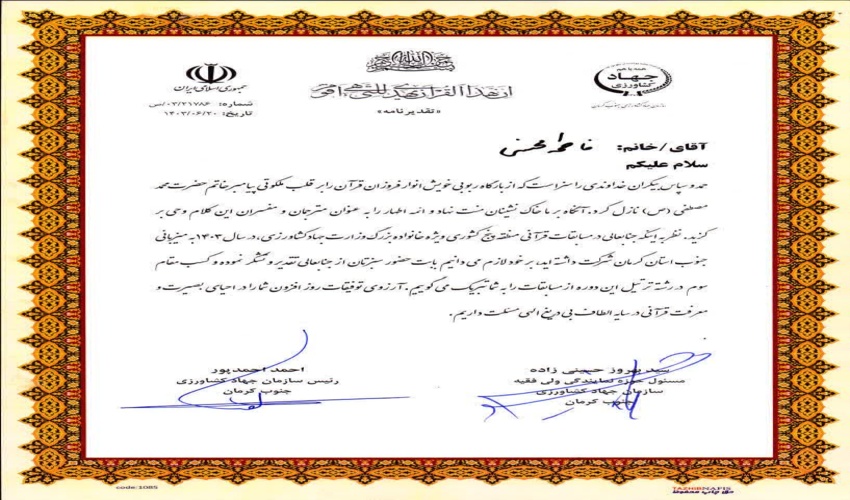 جمهوری اسلامی ایران
شماره: ۰۳/۲۱۷۸۶/ص
تاریخ: ۱۴۰۳/۰۶/۲۰
ان هذا القرآن یهدی للتی هی اقوم
«تقدیرنامه»
همه با هم
جهاد
کشاورزی
سازمان جهاد کشاورزی جنوب کرمان
آقای/خانم: فاطمه محسنی
سلام علیکم
حمد و سپاس بیکران خداوندی را سزاست که از بارگاه ربوبی خویش انوار فروزان قرآن را بر قلب ملکوتی پیامبر خاتم حضرت محمد
مصطفی (ص) نازل کرد. آنگاه بر ما خاک نشینان منت نهاد و ائمه اطهار را به عنوان مترجان و مفسران این کلام وحی بر
گزید. نظر به اینکه جنابعالی در مسابقات قرآنی منطقه پنج کشوری ویژه خانواده بزرگ وزارت جهاد کشاورزی، در سال ۱۴۰۳ به میزبانی
جنوب استان کرمان شرکت داشته اید، بر خود لازم می دانیم بابت حضور سبزتان از جنابعالی تقدیر و تشکر نموده و کسب مقام
سوم در رشته ترتیل این دوره از مسابقات را به شما تبریک می گوییم. آرزوی توفیقات روز افزون شما را در احیای بصیرت و
معرفت قرآنی در سایه الطاف بی دریغ الهی مسئلت داریم.
سید بهروز حسینی زاده
مسئول حوزه نمایندگی ولی فقیه
سازمان جهاد کشاورزی
جنوب کرمان
احمد احمدپور
رئیس سازمان جهاد کشاورزی
جنوب کرمان
code:1085
TAZHIBNAFIS
حق چاپ محفوظ